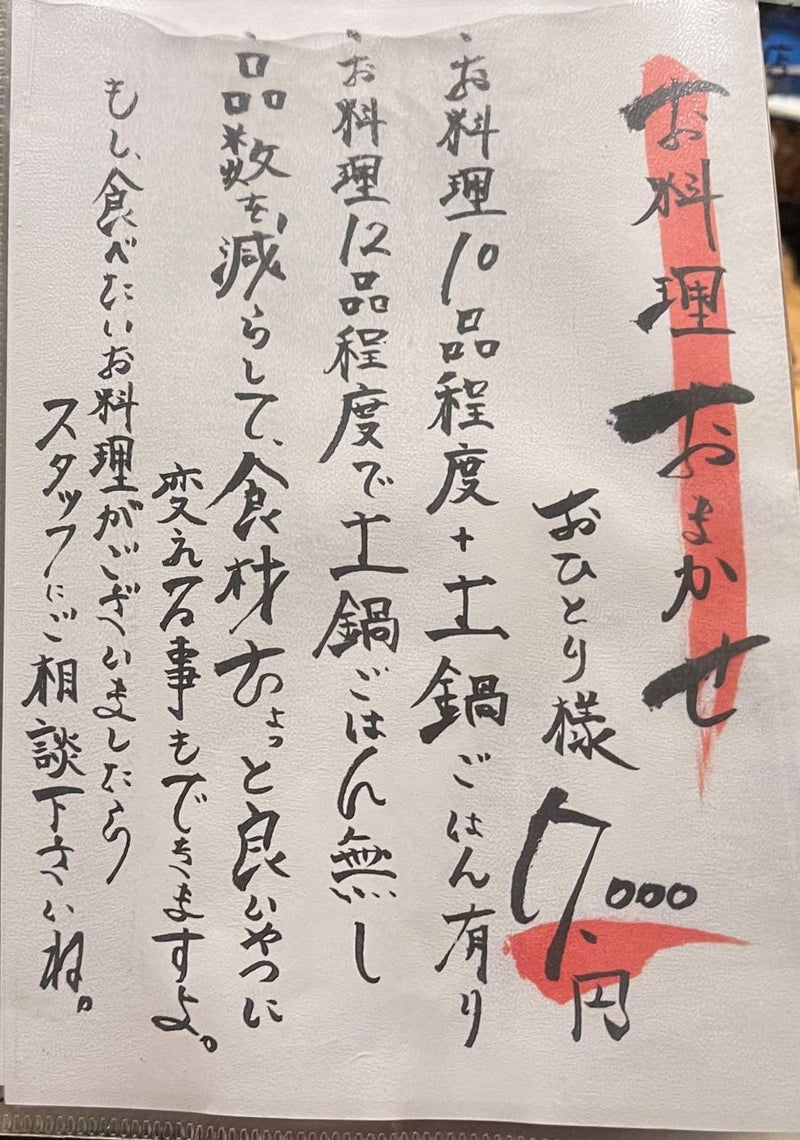 お料理おまかせ
おひとり様 7,000円
・お料理10品程度+土鍋ごはん有り
・お料理12品程度で土鍋ごはん無し
・品数を減らして、食材ちょっと良いやつに
変える事もできますよ。
もし、食べたいお料理がございましたら
スタッフにご相談下さいね。